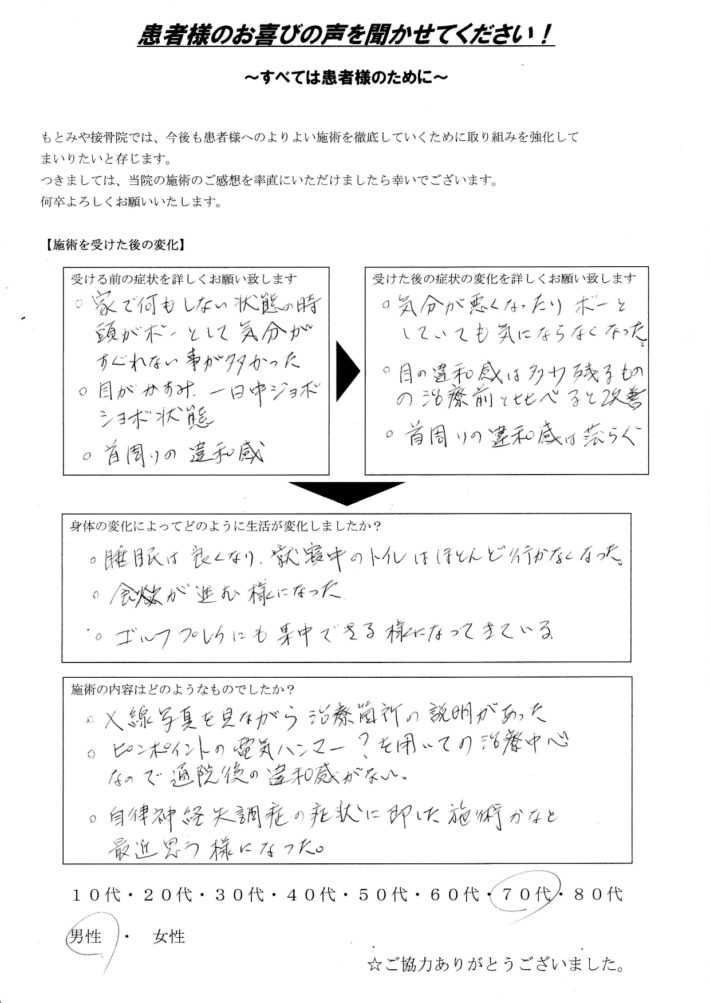 患者様のお喜びの声を聞かせてください！
～すべては患者様のために～
もとみや接骨院では、今後も患者様へのよりよい施術を徹底していくために取り組みを強化して
まいりたいと存じます。
つきましては、当院の施術のご感想を率直にいただけましたら幸いでございます。
何卒よろしくお願いいたします。
【施術を受けた後の変化】
受ける前の症状を詳しくお願い致します
○家で何もしない状態の時
頭がボーとして気分が
すぐれない事が多かった
○目がかすみ、一日中ショボ
ショボ状態
○首周りの違和感
受けた後の症状の変化を詳しくお願い致します
○気分が悪くなったりボーと
していても気にならなくなった。
○目の違和感は多少残るもの
の治療前と比べると改善
○首周りの違和感は薄らぐ
身体の変化によってどのように生活が変化しましたか？
○睡眠は良くなり、就寝中のトイレはほとんど行かなくなった。
○食欲が進む様になった
○ゴルフプレイにも集中できる様になってきている
施術の内容はどのようなものでしたか？
○X線写真を見ながら治療箇所の説明があった
○ピンポイントの電気ハンマー？を用いての治療中心
なので通院後の違和感がない。
○自律神経失調症の症状に即した施術かなと
最近思う様になった。
１０代・２０代・３０代・４０代・５０代・６０代・７０代・８０代
男性　・　女性
☆ご協力ありがとうございました。